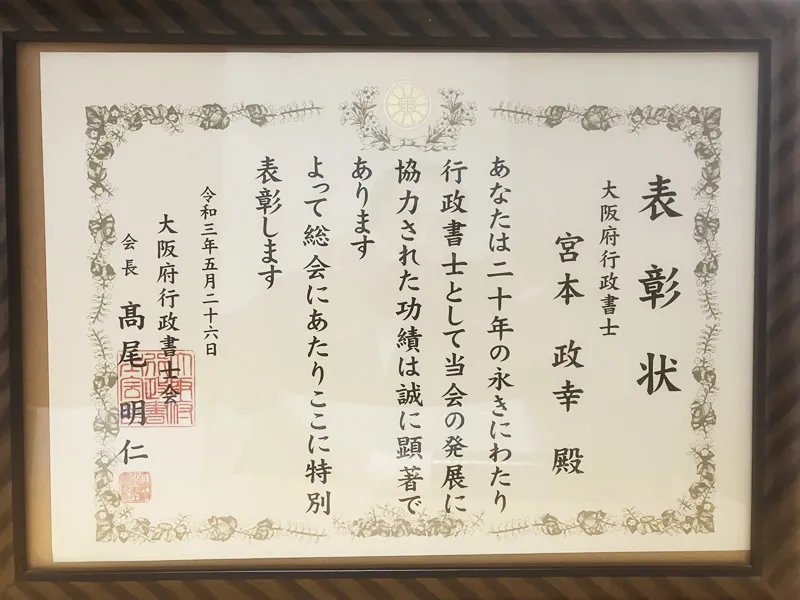 表彰状
大阪府行政書士
宮本 政幸 殿
あなたは二十年の永きにわたり
行政書士として当会の発展に
協力された功績は誠に顕著で
あります
よって総会にあたりここに特別
表彰します
令和三年五月二十六日
大阪府行政書士会
会長 髙尾明仁